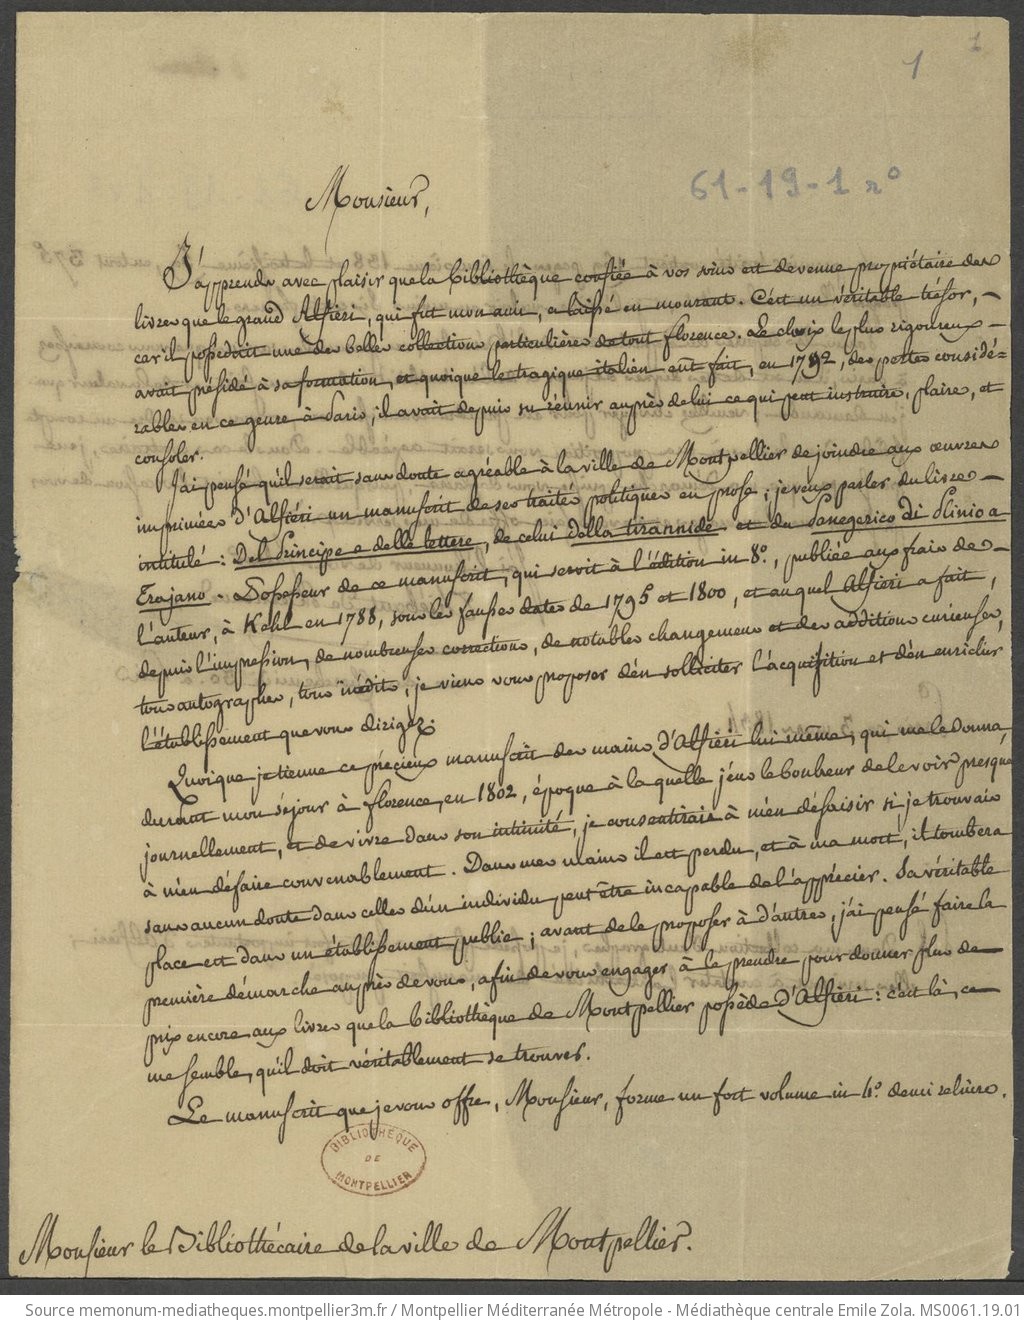 1
1
61-19-1 rº
Monsieur,
J'apprends avec plaisir que la bibliothèque confiée à vos soins est devenue propriétaire des
livres que le grand Alfieri, qui fut mon ami, a laissé en mourant. C'est un véritable trésor, –
car il possédait une des belles collections particulières de tout florence. Le choix le plus rigoureux –
avait présidé à sa formation, et quoique le tragique italien eût fait, en 1792, des pertes considé=
rables en ce genre à Paris, il avait depuis su réunir auprès de lui ce qui peut instruire, plaire, et
consoler.
J'ai pensé qu'il serait sans doute agréable à la ville de Montpellier de joindre aux œuvres
imprimées d'Alfiéri un manuscrit de ses traités politiques en prose ; je veux parler du livre –
intitulé : Del Principe e delle lettere, de celui della tirannide et du Panegerico di Plinio a
Trajano. Possesseur de ce manuscrit, qui servit à l'édition in 8º., publiée aux frais de –
l'auteur, à Kehl en 1788, sous les fausses dates de 1795 et 1800, et auquel Alfieri a fait,
depuis l'impression, de nombreuses corrections, de notables changemens et des additions curieuses,
tous autographes, tous inédits, je viens vous proposer d'en solliciter l'acquisition et d'en enrichir
l'établissement que vous dirigez.
Quoique je tienne ce précieux manuscrit des mains d'Alfieri lui même, qui me le donna,
durant mon séjour à florence, en 1802, époque à la quelle j'eus le bonheur de le voir presque
journellement, et de vivre dans son intimité, je consentirais à m'en désaisir si je trouvais
à m'en défaire convenablement. Dans mes mains il est perdu, et à ma mort, il tombera
sans aucun doute dans celles d'un individu peut être incapable de l'apprécier. Sa véritable
place est dans un établissement public ; avant de le proposer à d'autres, j'ai pensé faire la
première démarche auprès de vous, afin de vous engager à le prendre pour donner plus de
prix encore aux livres que la bibliothèque de Montpellier possède d'Alfiéri : c'est là, ce
me semble, qu'il doit véritablement se trouver.
Le manuscrit que je vous offre, Monsieur, forme un fort volume in 4º. demi reliure.
BIBLIOTHÈQUE
DE
MONTPELLIER
Monsieur le Bibliothécaire de la ville de Montpellier.
Source memonum-mediatheques.montpellier3m.fr / Montpellier Méditerranée Métropole - Médiathèque centrale Emile Zola. MS0061.19.01